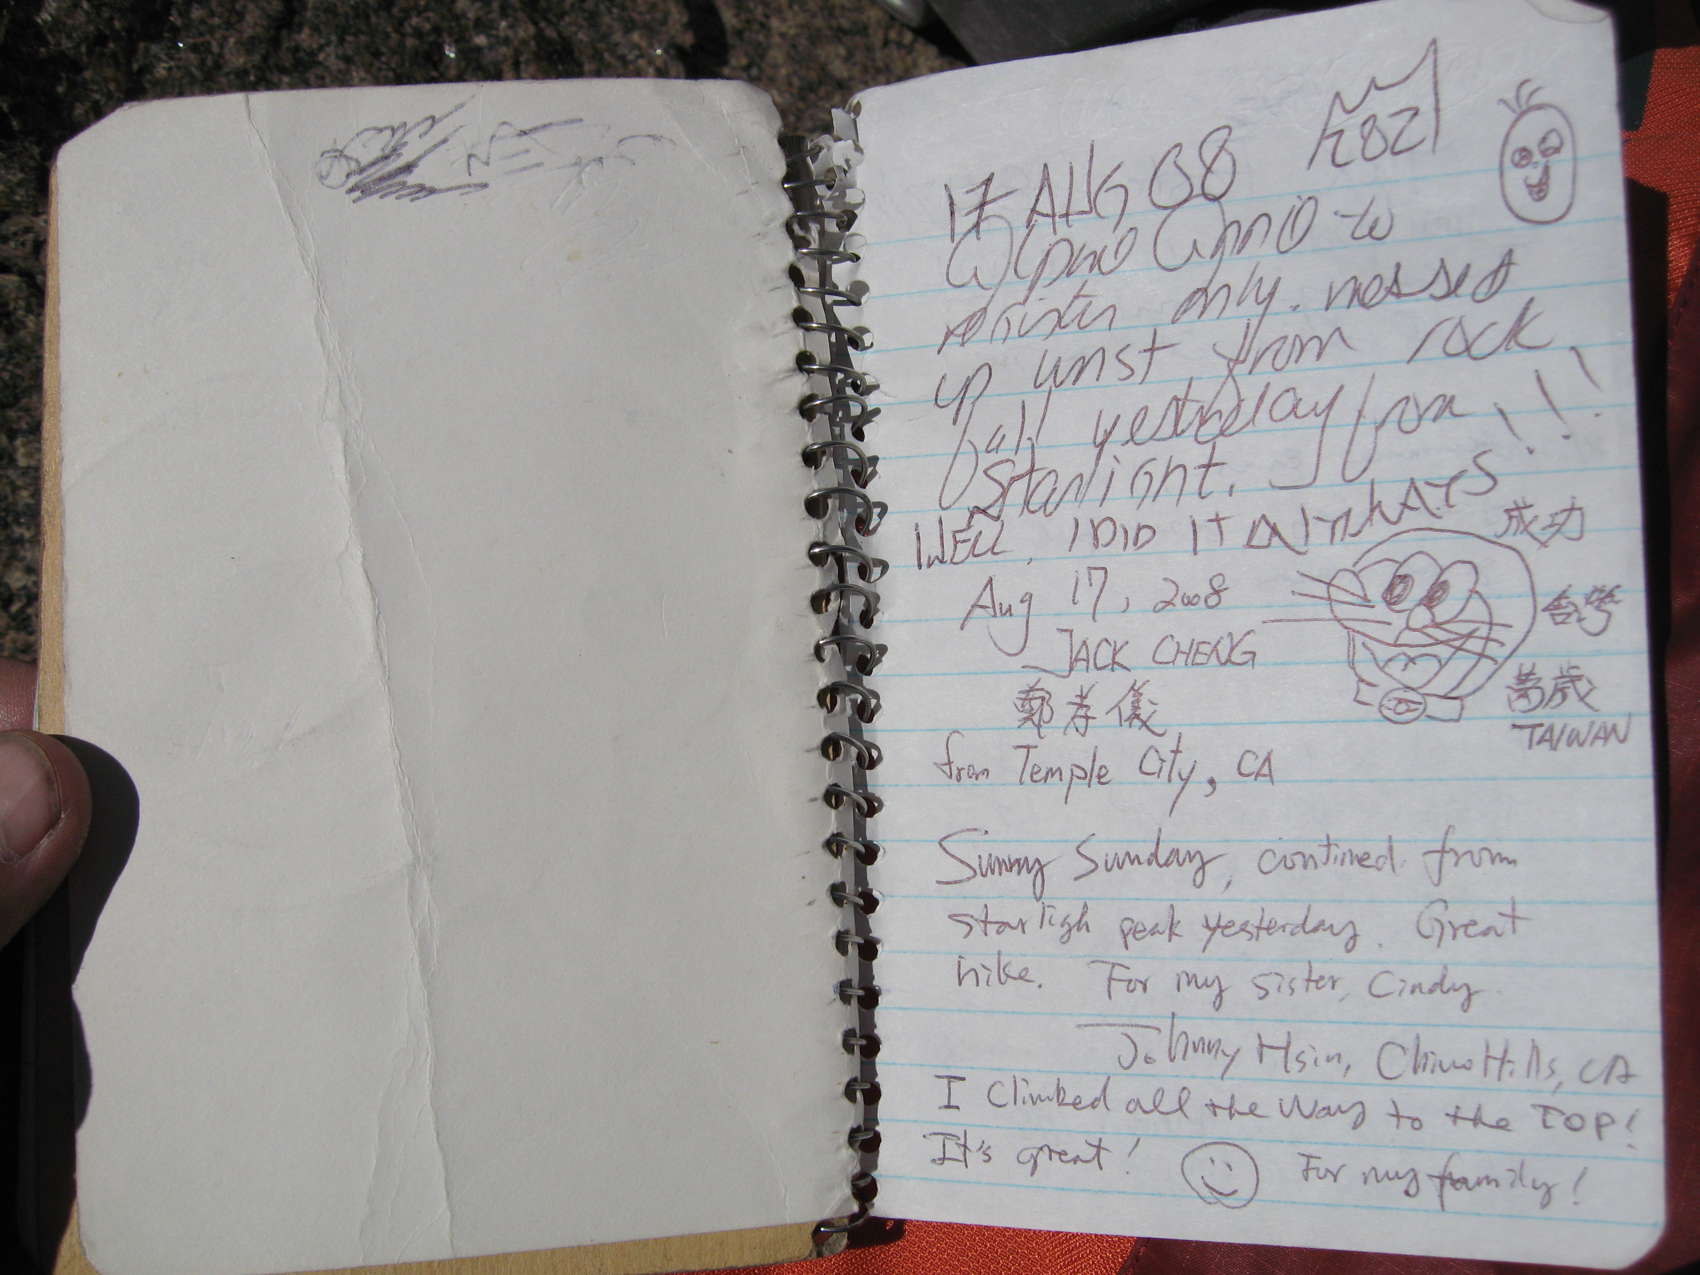 17 AUG 08
to
only. messed
up wrist from rock
fall yesterday from
Starlight. !!!
WELL, I DID IT ANYWAYS
成功
Aug 17, 2008
台灣
JACK CHENG
鄭孝儀
萬歲
TAIWAN
from Temple City, CA
Sunny Sunday, contined from
starligh peak yesterday. Great
hike. For my sister, Cindy.
Johnny Hsin, Chino Hills, CA
I climbed all the way to the TOP!
It's great! For my family!